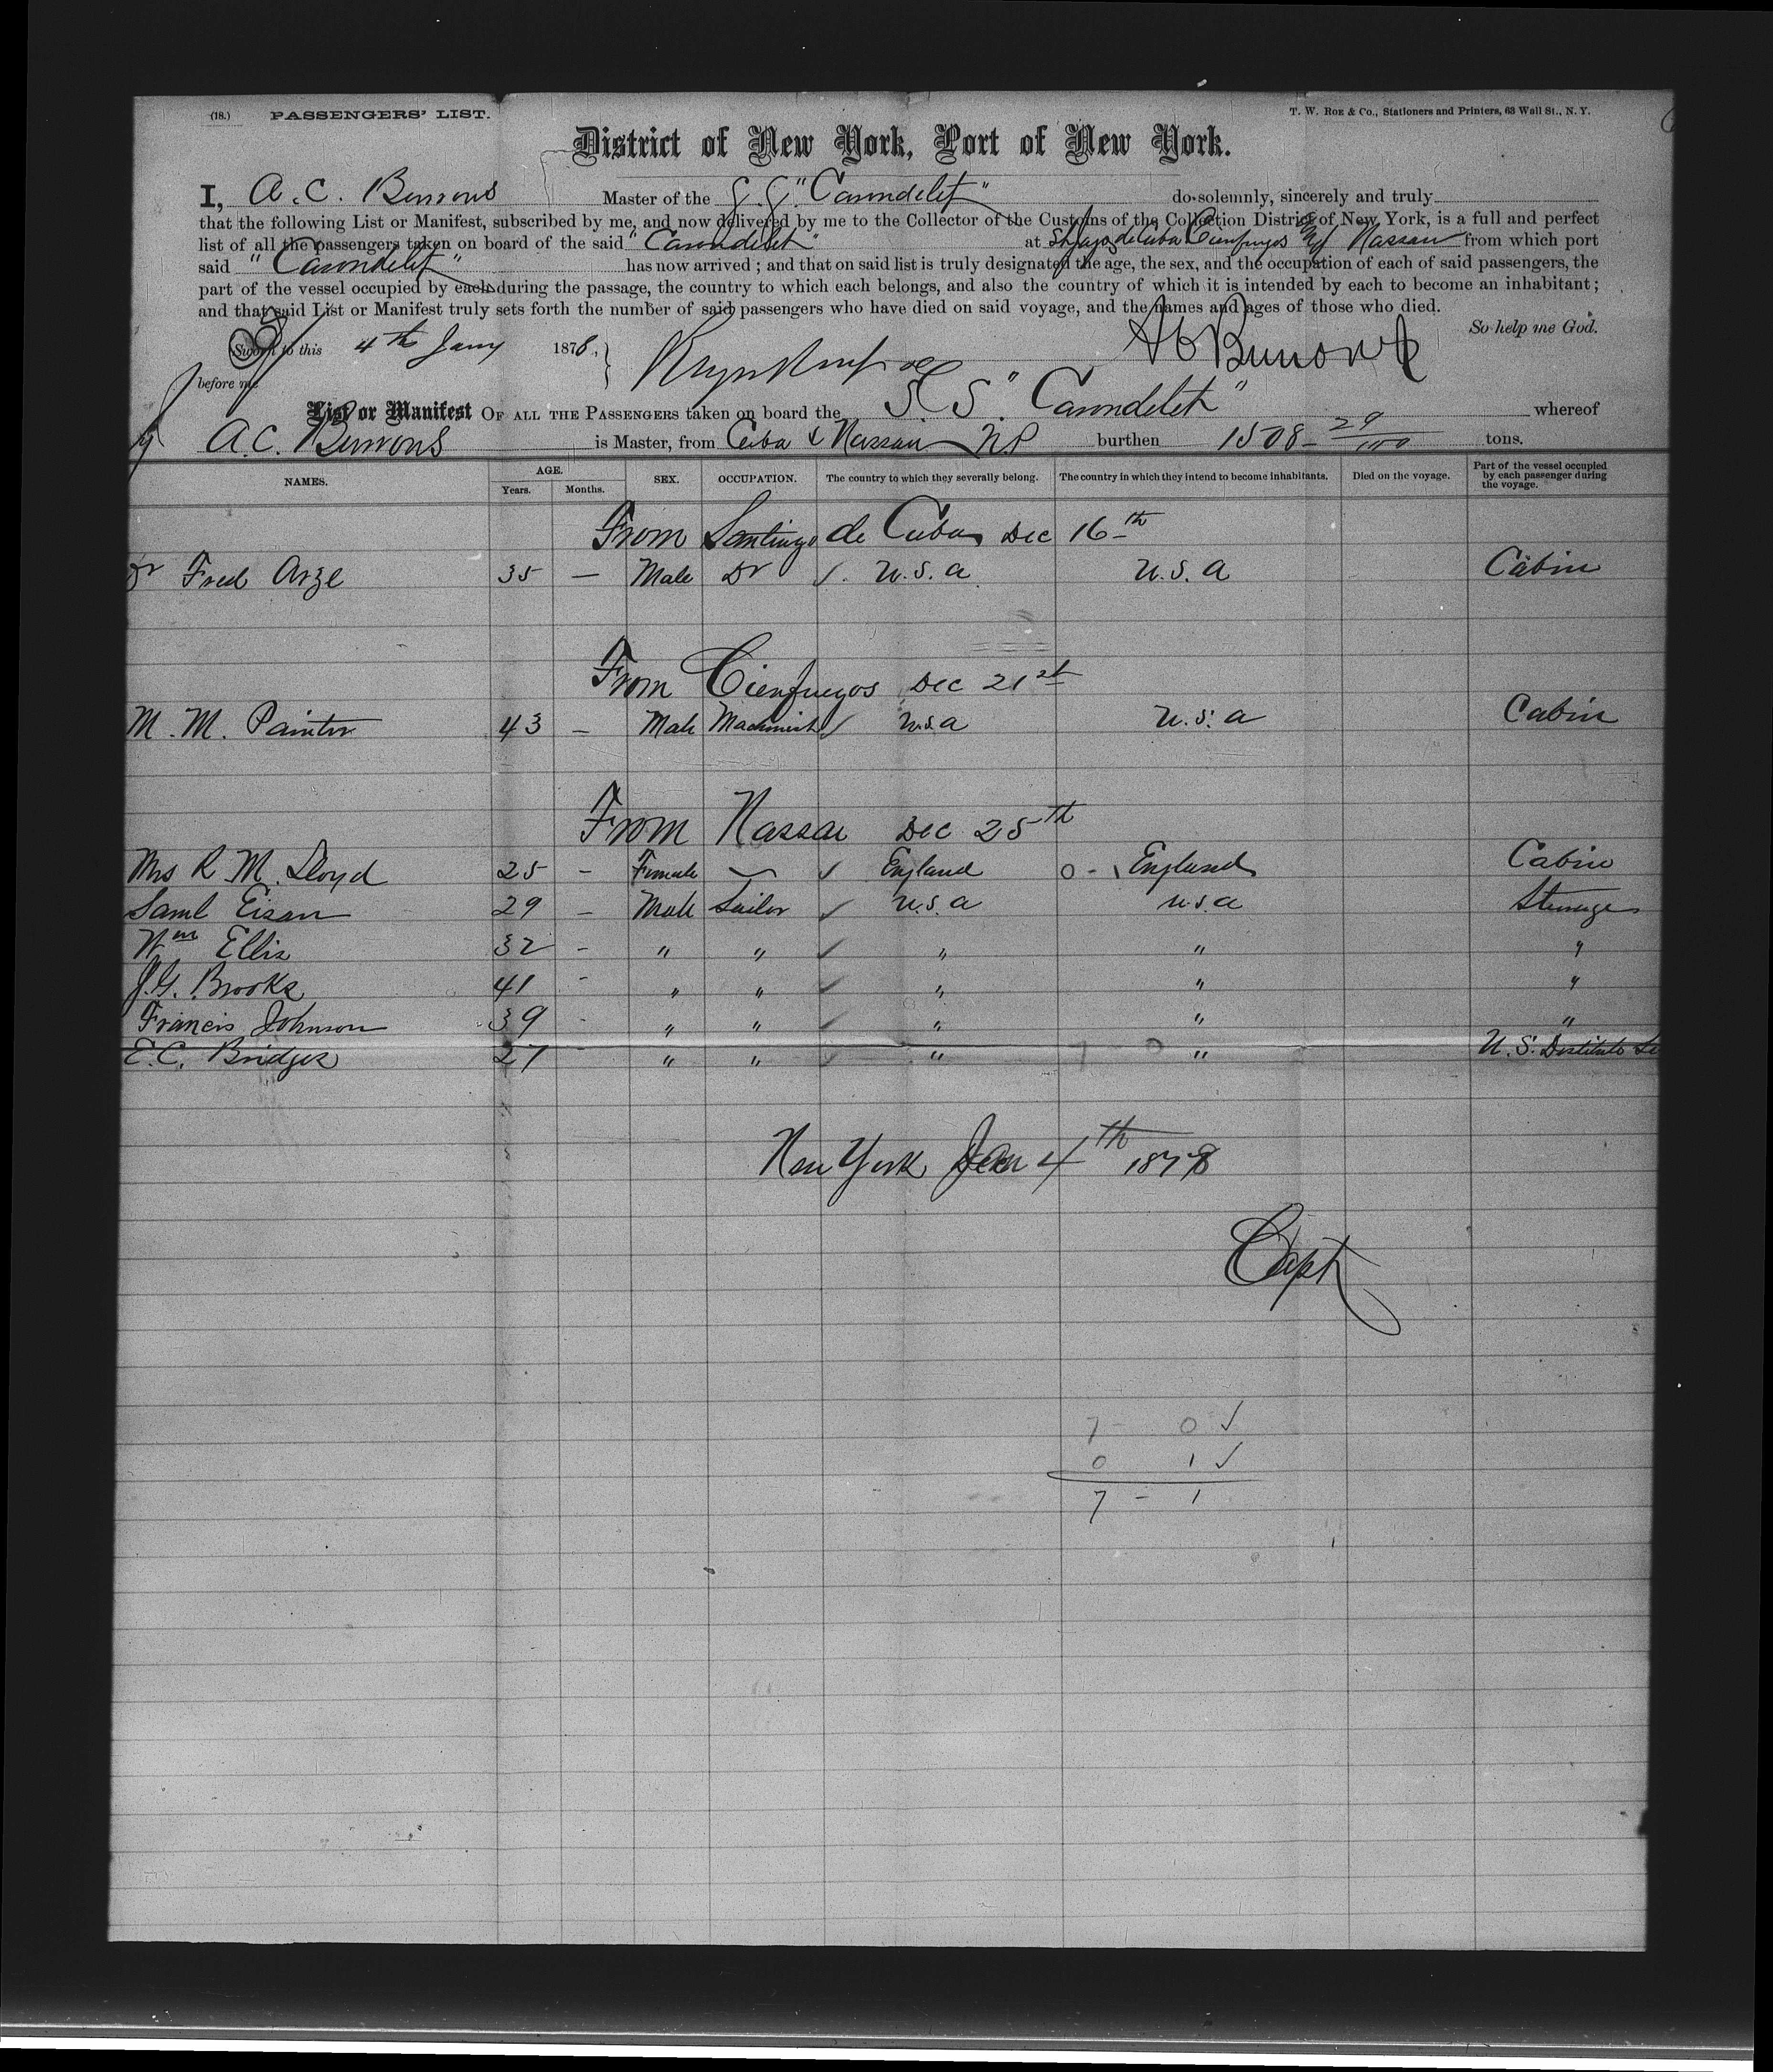 (18.) PASSENGERS' LIST. T. W. ROE & Co., Stationers and Printers, 63 Wall St., N. Y.
District of New York, Port of New York.
I, A. C. Burrows Master of the S.S. "Carondelet" do solemnly, sincerely and truly
that the following List or Manifest, subscribed by me, and now delivered by me to the Collector of the Customs of the Collection District of New York, is a full and perfect
list of all the passengers taken on board of the said "Carondelet" at St Jago de Cuba Cienfuegos and Nassau from which port
said "Carondelet" has now arrived; and that on said list is truly designated the age, the sex, and the occupation of each of said passengers, the
part of the vessel occupied by each during the passage, the country to which each belongs, and also the country of which it is intended by each to become an inhabitant;
and that said List or Manifest truly sets forth the number of said passengers who have died on said voyage, and the names and ages of those who died.
So help me God.
Sworn to this 4th Jany 1878, A C Burrows
before me
List or Manifest OF ALL THE PASSENGERS taken on board the S S "Carondelet" whereof
A. C. Burrows is Master, from Cuba & Nassau N.P. burthen 1508 - 29/100 tons.
NAMES. AGE. Years. Months. SEX. OCCUPATION. The country to which they severally belong. The country in which they intend to become inhabitants. Died on the voyage. Part of the vessel occupied by each passenger during the voyage.
From Santiago de Cuba Dec 16th
Dr Fred Arze 35 — Male Dr ✓. U.S.A U.S.A Cabin
From Cienfuegos Dec 21st
M. M. Painter 43 — Male Machinist ✓ U.S.A U.S.A Cabin
From Nassau Dec 25th
Mrs R. M. Lloyd 25 - Female — ✓ England 0 - 1 England Cabin
Saml Eisan 29 - Male Sailor ✓ U.S.A U.S.A Steerage
Wm Ellis 32 - " " ✓ " " "
J. G. Brooks 41 - " " ✓ " " "
Francis Johnson 39 - " " ✓ " " "
E. C. Bridges 27 - " " ✓ " 7 0 " U. S. Destitute Se
New York Jan 4th 1878
Capt
7 - 0 ✓
0 1 ✓
7 - 1